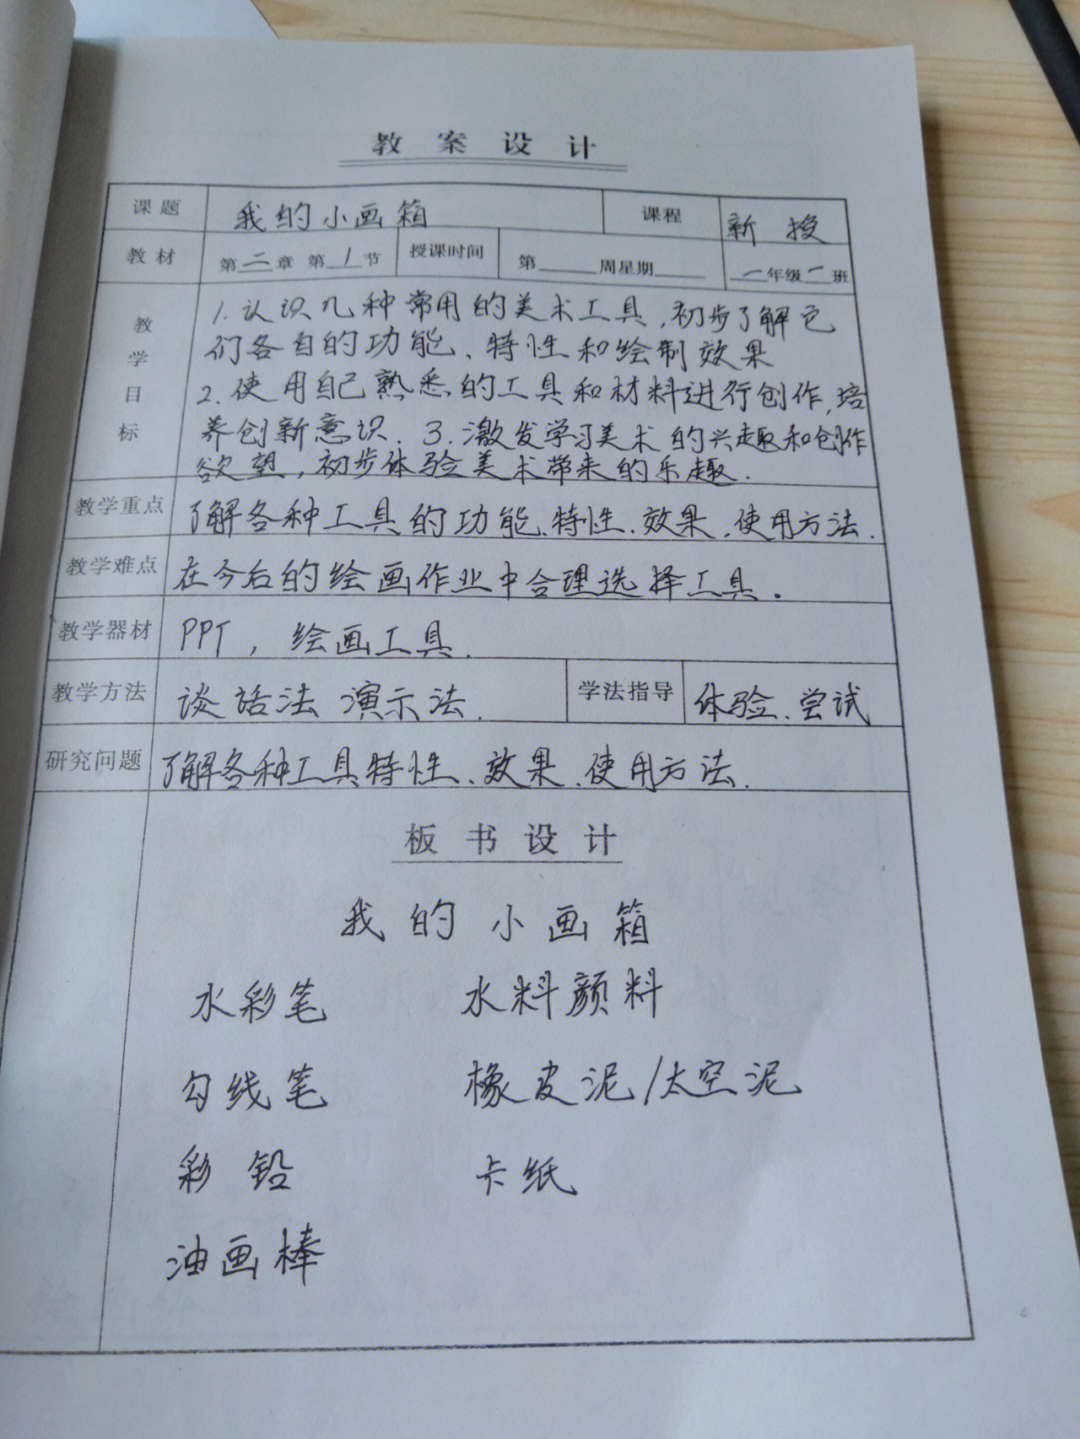 教案设计
课题 我的小画箱 课程 新授
教材 第二章 第1节 授课时间 第 周星期 一年级一班
教学目标
1.认识几种常用的美术工具,初步了解它
们各自的功能、特性和绘制效果
2.使用自己熟悉的工具和材料进行创作,培
养创新意识.3.激发学习美术的兴趣和创作
欲望,初步体验美术带来的乐趣.
教学重点 了解各种工具的功能、特性、效果、使用方法.
教学难点 在今后的绘画作业中合理选择工具.
教学器材 PPT,绘画工具.
教学方法 谈话法 演示法. 学法指导 体验、尝试
研究问题 了解各种工具特性、效果、使用方法.
板书设计
我的小画箱
水彩笔 水料颜料
勾线笔 橡皮泥/太空泥
彩铅 卡纸
油画棒